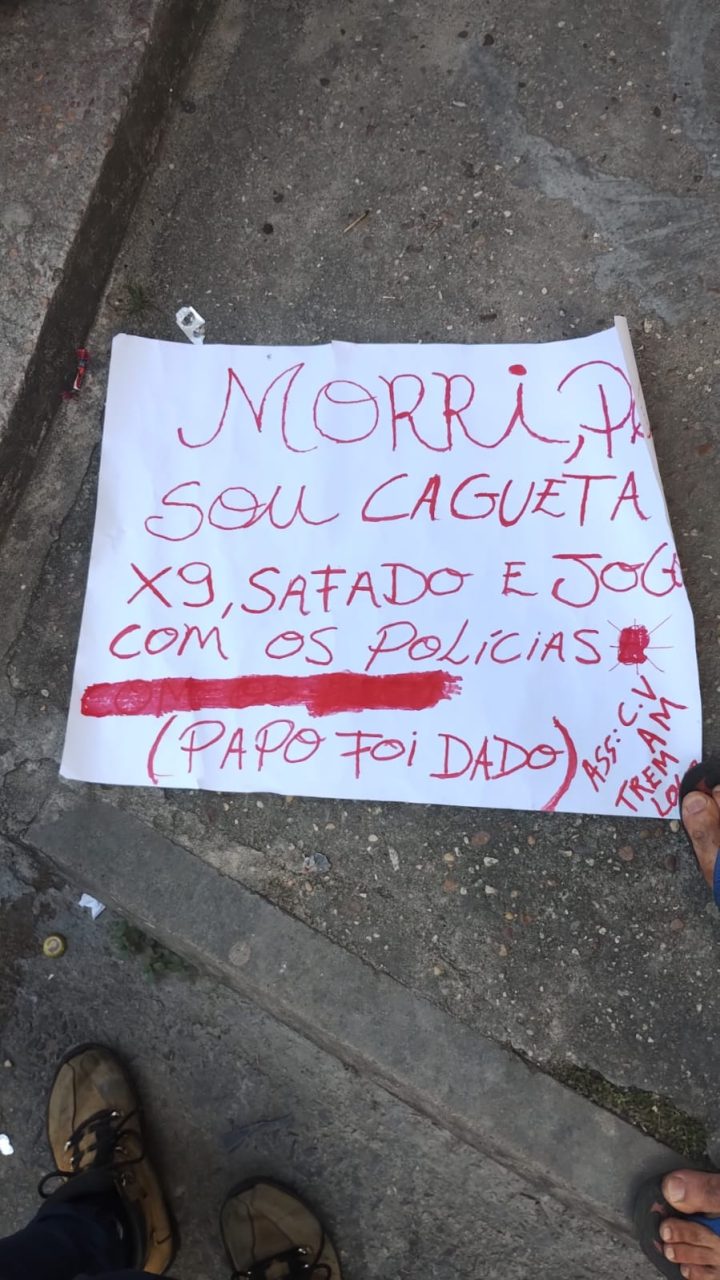 MORRi,
SOU CAGUETA
X9, SAFADO E
COM OS POLÍCIAS
(PAPO FOi DADO)
ASS: C.V
TREM AM